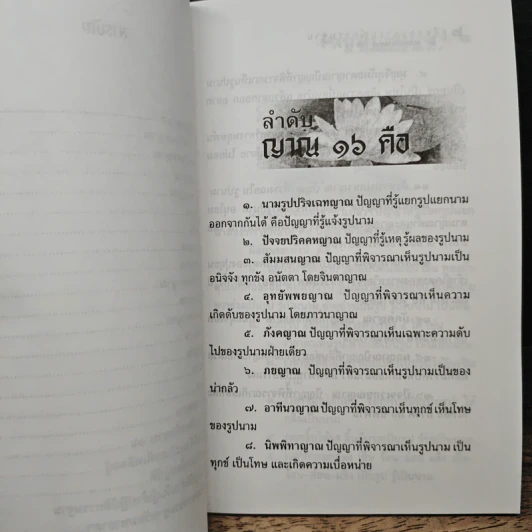 ลำดับ
ญาณ ๑๖ คือ
๑. นามรูปปริจเฉทญาณ ปัญญาที่รู้แยกรูปแยกนาม
ออกจากกันได้ คือปัญญาที่รู้แจ้งรูปนาม
๒. ปัจจยปริคคหญาณ ปัญญาที่รู้เหตุ รู้ผลของรูปนาม
๓. สัมมสนญาณ ปัญญาที่พิจารณาเห็นรูปนามเป็น
อนิจจัง ทุกขัง อนัตตา โดยจินตาญาณ
๔. อุทยัพพยญาณ ปัญญาที่พิจารณาเห็นความ
เกิดดับของรูปนาม โดยภาวนาญาณ
๕. ภังคญาณ ปัญญาที่พิจารณาเห็นเฉพาะความดับ
ไปของรูปนามฝ่ายเดียว
๖. ภยญาณ ปัญญาที่พิจารณาเห็นรูปนามเป็นของ
น่ากลัว
๗. อาทีนวญาณ ปัญญาที่พิจารณาเห็นทุกข์ เห็นโทษ
ของรูปนาม
๘. นิพพิทาญาณ ปัญญาที่พิจารณาเห็นรูปนาม เป็น
ทุกข์ เป็นโทษ และเกิดความเบื่อหน่าย